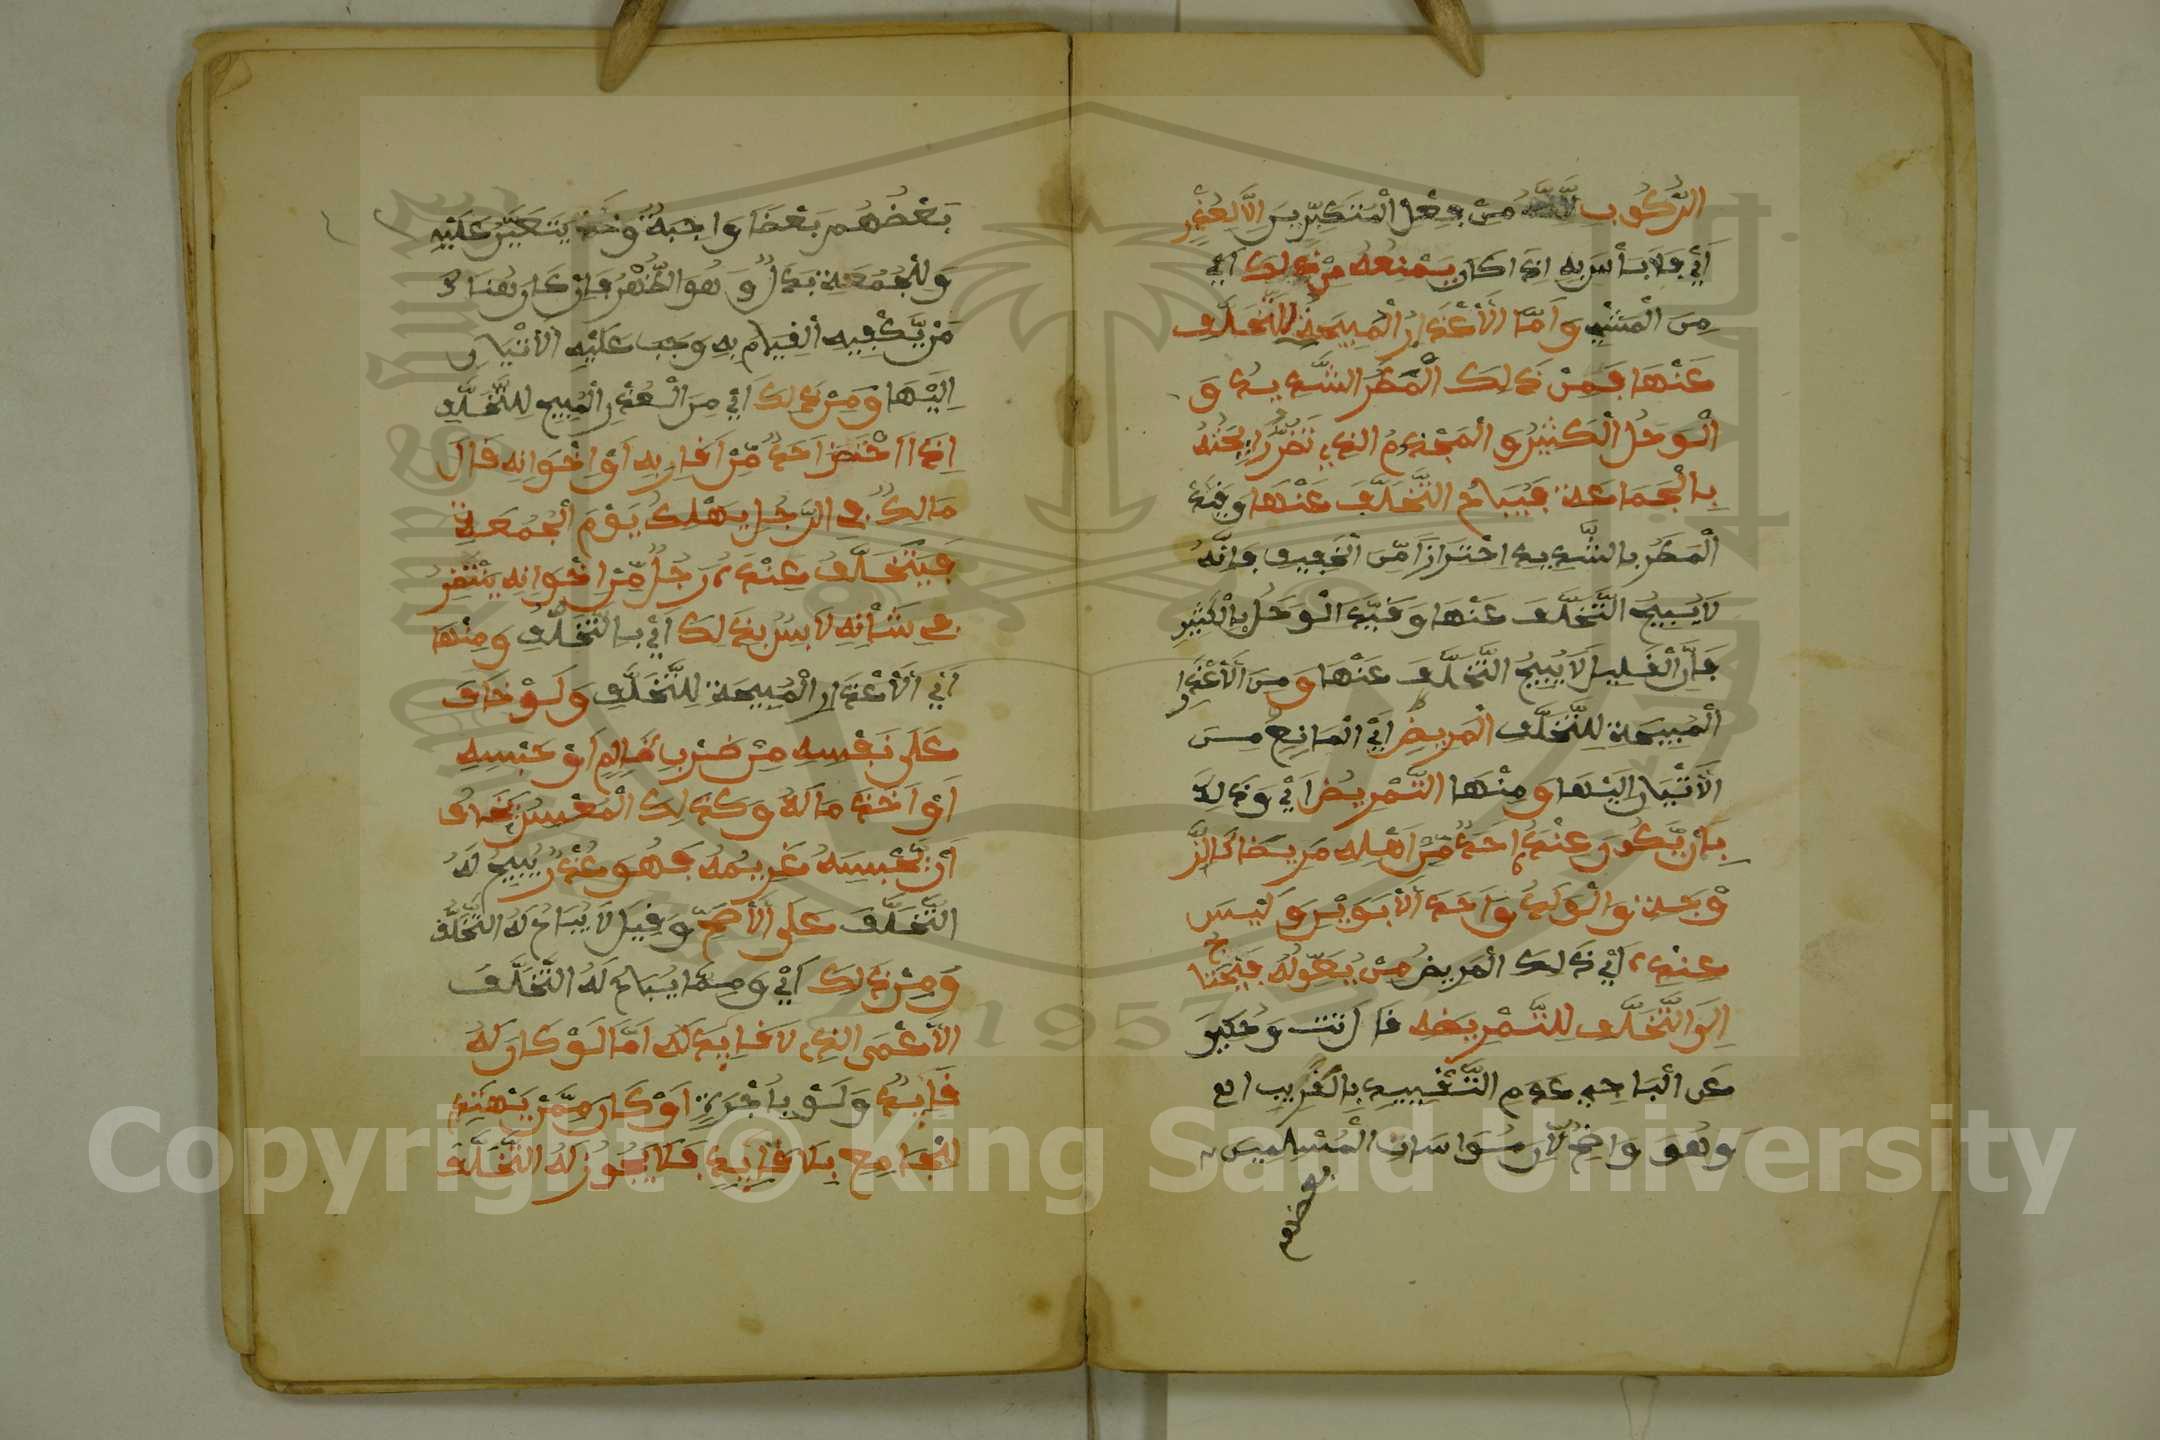 الرُّكُوبِ لِأَنَّهُ مِنْ فِعْلِ الْمُتَكَبِّرِينَ إِلَّا لِعُذْرٍ
أَيْ فَلَا بَأْسَ بِهِ إِذَا كَانَ يَمْنَعُهُ مِنْ ذَلِكَ أَيْ
مِنَ الْمَشْيِ وَأَمَّا الْأَعْذَارُ الْمُبِيحَةُ لِلتَّخَلُّفِ
عَنْهَا فَمِنْ ذَلِكَ الْمَطَرُ الشَّدِيدُ وَ
الْوَحْلُ الْكَثِيرُ وَالْمَجْذُومُ الذِي تَضُرُّ رَائِحَتُهُ
بِالْجَمَاعَةِ فَيُبَاحُ التَّخَلُّفُ عَنْهَا وَقَيَّدَ
الْمَطَرُ بِالشَّدِيدِ احْتِرَازًا مِّنَ الْخَفِيفِ فَإِنَّهُ
لَا يُبِيحُ التَّخَلُّفَ عَنْهَا وَقَيَّدَ الْوَحْلُ بِالْكَثِيرِ
فَإِنَّ الْقَلِيلَ لَا يُبِيحُ التَّخَلُّفَ عَنْهَا وَمِنَ الْأَعْذَارِ
الْمُبِيحَةِ لِلتَّخَلُّفِ الْمَرِيضُ أَيْ الْمَانِعُ مِنَ
الْإِتْيَانِ إِلَيْهَا وَمِنْهَا التَّمْرِيضُ أَيْ وَذَلِكَ
بِأَنْ يَّكُونَ عِنْدَهُ أَحَدٌ مِّنْ أَهْلِهِ مَرِيضًا كَالزَّ
وْجَةِ وَالْوَلَدِ وَأَحَدِ الْأَبَوَيْنِ وَلَيْسَ
عِنْدَهُ أَيْ ذَلِكَ الْمَرِيضُ مَنْ يَعُولُهُ فَيَحْتَاجُ
إِلَى التَّخَلُّفِ لِلتَّمْرِيضِهِ قَالَ تت وَحُكِيَ
عَنِ الْبَاجِي عَدَمُ التَّقْيِيدِ بِالْقَرِيبِ
وَهُوَ وَاضِحٌ لِأَنَّ مُوَاسَاتَ الْمُسْلِمِينَ
بعضهم
بَعْضُهُمْ بَعْضًا وَاجِبَةٌ يَتَعَيَّنُ عَلَيْهِ
وَلِلْجُمُعَةِ بَدَلٌ وَهُوَ الظُّهْرُ فَإِنْ كَانَ هُنَاكَ
مَنْ يَّكْفِيهِ الْقِيَامَ بِهِ وَجَبَ عَلَيْهِ الْإِتْيَانُ
إِلَيْهَا وَمِنْ ذَلِكَ أَيْ مِنَ الْعُذْرِ الْمُبِيحِ لِلتَّخَلُّفِ
إِذَا احْتَضَرَ أَحَدٌ مِّنْ أَقَارِبِهِ أَوْ إِخْوَانِهِ قَالَ
مَالِكٌ فِي الرَّجُلِ يَهْلِكُ يَوْمَ الْجُمُعَةِ
فَيَتَخَلَّفُ عِنْدَهُ رَجُلٌ مِّنْ إِخْوَانِهِ يَنْظُرُ
فِي شَأْنِهِ لَا بَأْسَ بِذَلِكَ أَيْ بِالتَّخَلُّفِ وَمِنْهَا
أَيْ الْأَعْذَارِ الْمُبِيحَةِ لِلتَّخَلُّفِ وَلَوْ خَافَ
عَلَى نَفْسِهِ مِنْ ضَرْبِ ظَالِمٍ أَوْ حَبْسِهِ
أَوْ أَخْذِ مَالِهِ وَكَذَلِكَ الْمُعْسِرُ يَخَافُ
أَنْ يَّحْبِسَهُ غَرِيمُهُ فَهُوَ عُذْرٌ يُبِيحُ لَهُ
التَّخَلُّفَ عَلَى الْأَصَحِّ وَقِيلَ لَا يُبَاحُ لَهُ التَّخَلُّفُ
وَمِنْ ذَلِكَ أَيْ وَمِمَّا يُبَاحُ لَهُ التَّخَلُّفُ
الْأَعْمَى الذِي لَا قَايِدَ لَهُ أَمَّا لَوْ كَانَ لَهُ
قَايِدٌ وَلَوْ بِأُجْرَةٍ أَوْ كَانَ مِمَّنْ يَهْتَدِي
لِلْجَامِعِ بِلَا قَايِدٍ فَلَا يَجُوزُ لَهُ التَّخَلُّفُ
1957
Copyright © King Saud University